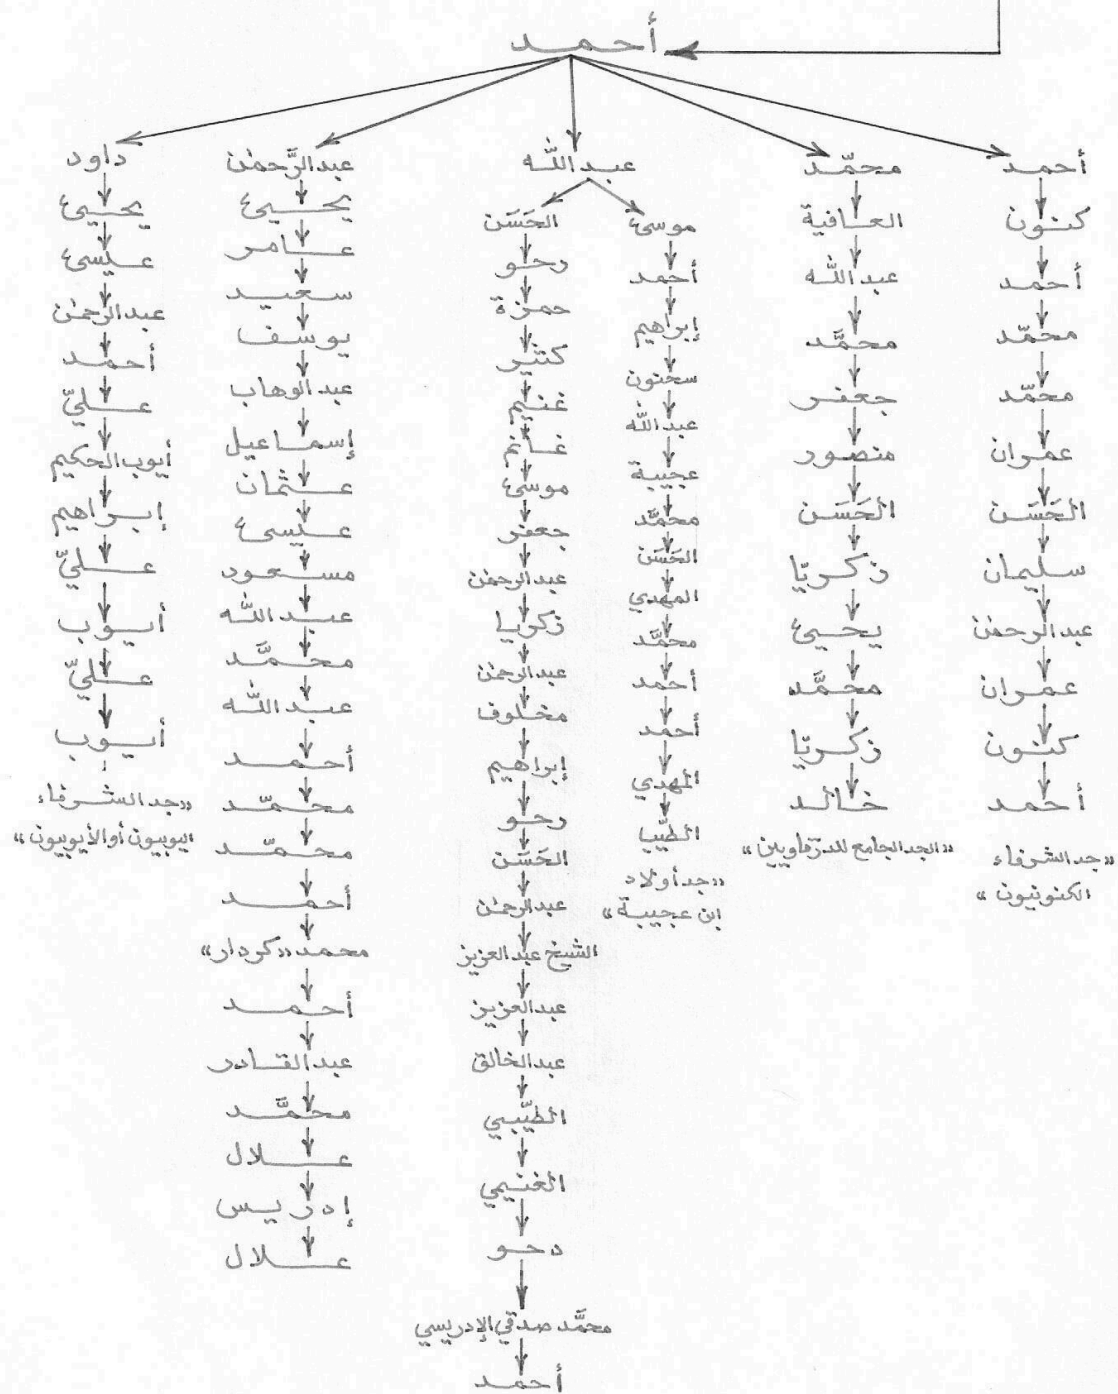 أحمد
أحمد
كنون
أحمد
محمّد
محمّد
عمران
الحَسَن
سليمان
عبد الرحمٰن
عمران
كنون
أحمد
«جد الشرفاء
الكنونيون»
محمّد
العافية
عبد اللّٰه
محمَّد
جعفر
منصور
الحَسَن
زكريّا
يحيىٰ
محمَّد
زكريّا
خالد
«الجد الجامع للدرقاويين»
عبد اللّٰه
موسىٰ
أحمد
إبراهيم
سحنون
عبد اللّٰه
عجيبة
محمَّد
الحَسَن
المهدي
محمَّد
أحمد
أحمد
المهدي
الطيّب
«جد أولاد
ابن عجيبة»
الحَسَن
رحو
حمزة
كثير
غنيم
غانم
موسىٰ
جعفر
عبد الرحمٰن
زكريا
عبد الرحمٰن
مخلوف
إبراهيم
رحو
الحَسَن
عبد الرحمٰن
الشيخ عبد العزيز
عبد العزيز
عبد الخالق
الطيّبي
الغنيمي
دحو
محمَّد صدقي الإدريسي
أحمد
عبد الرَّحمٰن
يحيىٰ
عامر
سعيد
يوسف
عبد الوهاب
إسماعيل
عثمان
عيسىٰ
مسعود
عبد اللّٰه
محمَّد
عبد اللّٰه
أحمد
محمّد
محمّد
أحمد
محمد «كردار»
أحمد
عبد القادر
محمَّد
علال
إدريس
علال
داود
يحيىٰ
عيسىٰ
عبد الرحمٰن
أحمد
عليّ
أيوب الحكيم
إبراهيم
عليّ
أيوب
عليّ
أيوب
«جد الشرفاء
اليوبيون أو الأيوبيون»